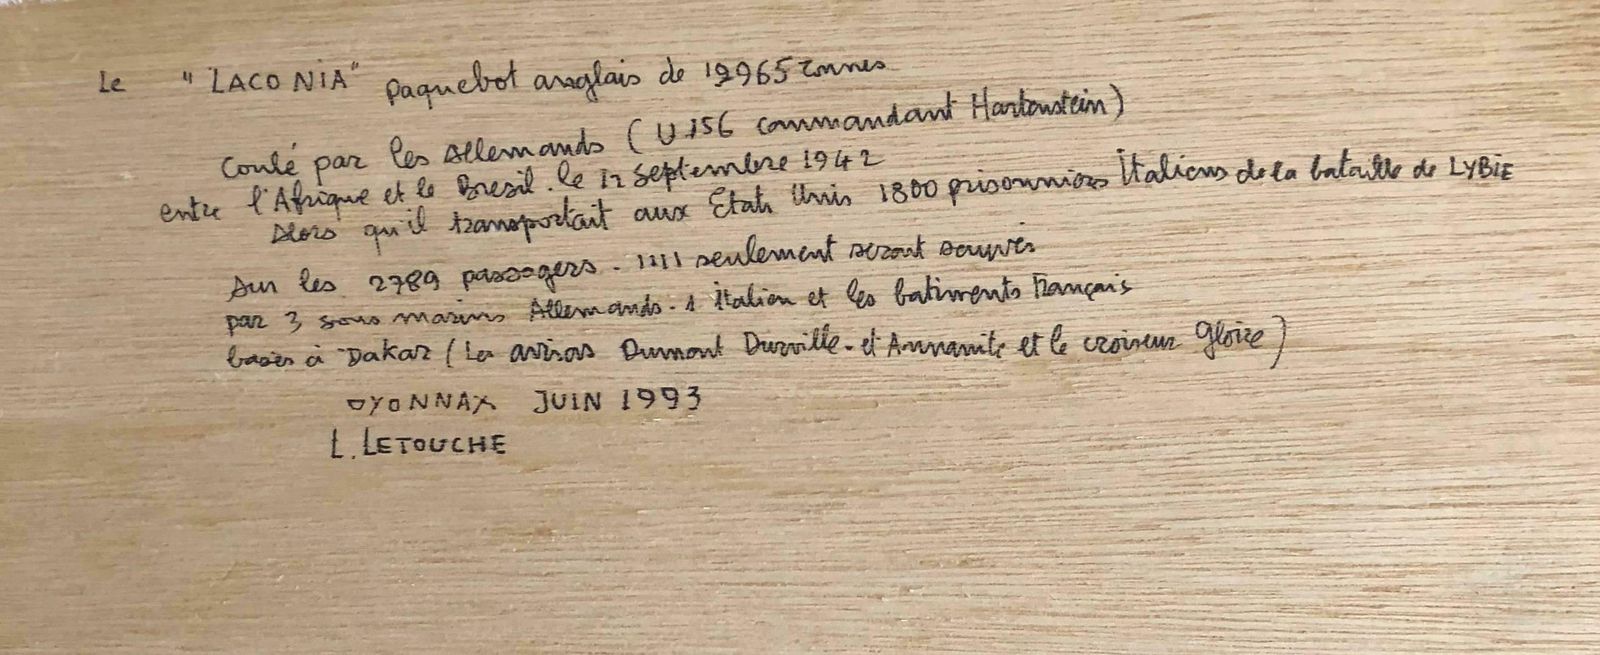 Le "LACONIA" paquebot anglais de 19965 tonnes
Coulé par les Allemands (U 156 commandant Hartenstein)
entre l'Afrique et le Bresil. le 12 septembre 1942
Alors qu'il transportait aux Etats Unis 1800 prisonniers Italiens de la bataille de LYBIE
Sur les 2789 passagers. 1111 seulement seront sauvés
par 3 sous marins Allemands. 1 italien et les batiments Français
basés à Dakar (Les avisos Dumont Durville. et Annamite et le croiseur Gloire)
OYONNAX JUIN 1993
L. LETOUCHE